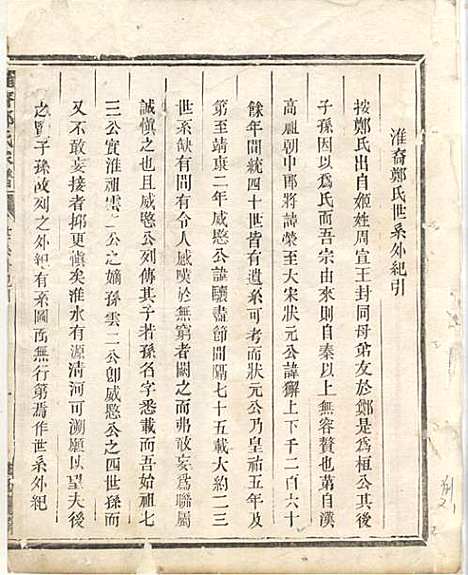 淮裔鄭氏世系外紀引
按鄭氏出自姬姓周宣王封同母弟友於鄭是為桓公其後
子孫因以為氏而吾宗由來則自秦以上無容贅也第自漢
高祖朝中郎將諱榮至大宋狀元公諱獬上下千二百六十
餘年間統四十世皆有遺系可考而狀元公乃皇祐五年及
第至靖康二年威愍公諱驤盡節間隔七十五載大約二三
世系缺有間有令人感嘆於無窮者闕之而弗敢妄為聯屬
誠慎之也且威愍公列傳其子若孫名字悉載而吾始祖七
三公實淮祖雲二公之嫡孫雲二公卽威愍公之四世孫而
又不敢妄接者抑更慎矣淮水有源清河可溯願以望夫後
之賢子孫故列之外紀有系圖而無行第焉作世系外紀
鄭氏